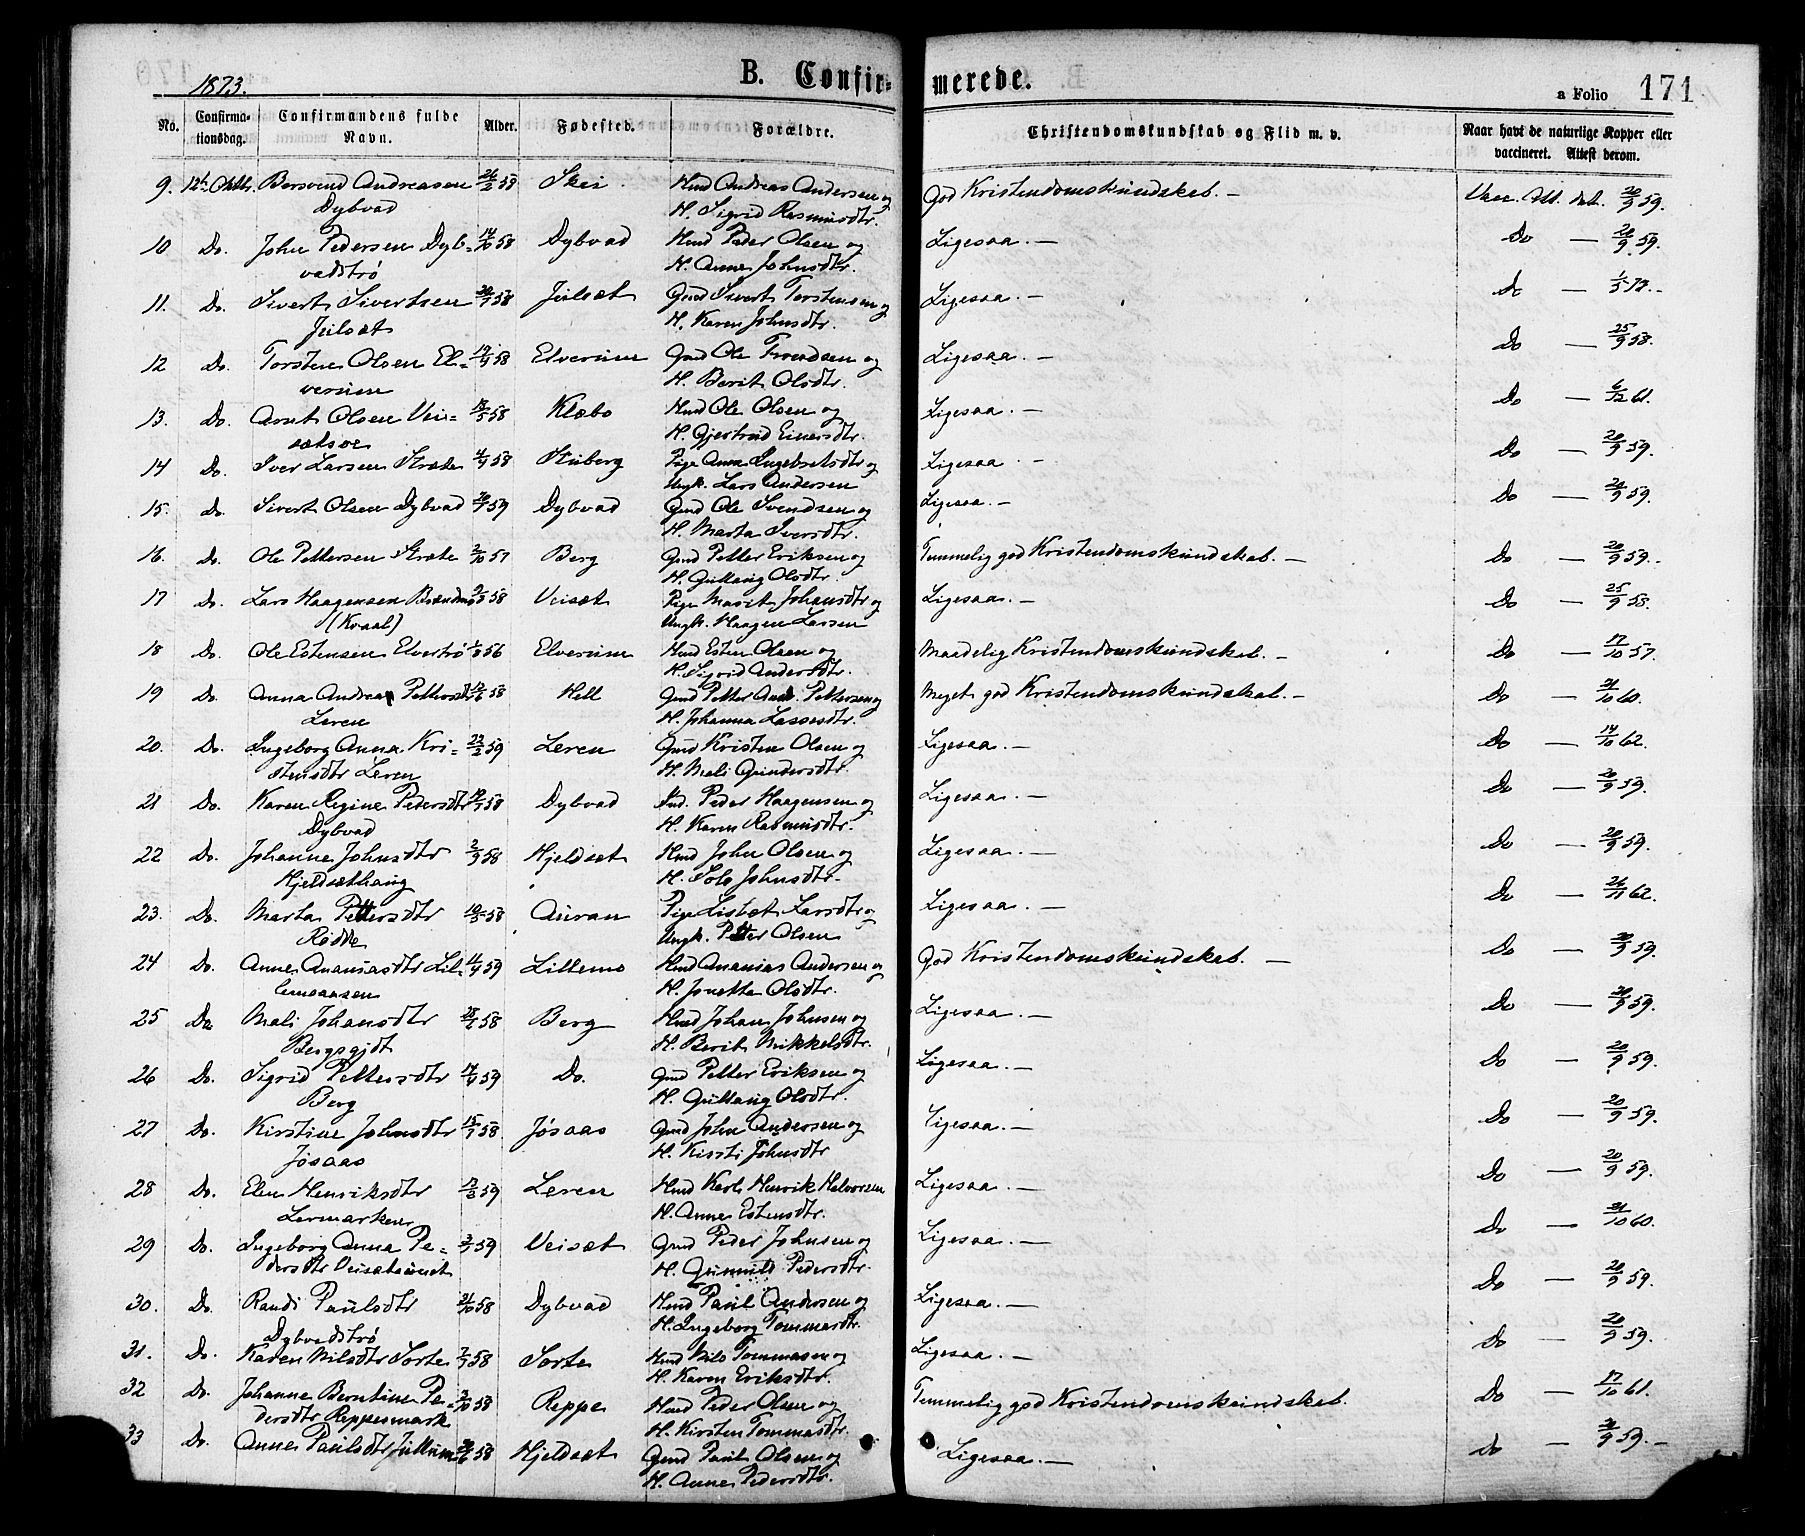 1873.
B. Confirmerede.
a Folio 171
No. Confirmationsdag. Confirmandens fulde Navn. Alder. Fødested. Forældre. Christendomskundskab og Flid m. v. Naar havt de naturlige Kopper eller vaccineret. Attest derom.
9. 12te Oktbr. Andreasen 58 Skei Hmd Andreas Andersen og God Kristendomskundskab. — Vacc. Att. dat. 20/9 59.
Dybvad H. Sigrid Rasmusdtr.
10 Do. John Pedersen Dyb- 58 Dybvad Hmd Peder Olsen og Ligesaa. — Do — 20/9 59.
vadstrø H. Anne Johnsdtr.
11. Do. Sivert Sivertsen 58 Julset Gmd Sivert Torstensen og Ligesaa. — Do —
Julset H. Karen Johnsdtr.
12 Do. Torsten Olsen El- 19/4 58 Elverum Gmd Ole Trondsen og Ligesaa. — Do — 25/9 58.
verum H. Berit Olsdtr.
13. Do. Arnt Olsen Vei- 58 Klæbo Hmd Ole Olsen og Ligesaa. — Do — 6/12 61.
H. Gjertrud Einersdtr.
14 Do. Iver Larsen 58 Stuberg Pige Anna Ingebretsdtr og Ligesaa — Do — 20/9 59.
Ungk. Lars Andersen
15. Do. Sivert Olsen Dybvad 59 Dybvad Gmd Ole Svendsen og Ligesaa. — Do — 20/9 59.
H. Marta Iversdtr.
16. Do. Ole Pettersen 2/10 57 Berg Gmd Petter Eriksen og Temmelig god Kristendomskundskab. — Do — 20/9 59.
H. Gullaug Olsdtr.
17 Do. Lars Haagensen 58 Veiset Pige Marit Johansdtr og Ligesaa. — Do — 25/9 58.
(Kvaal) Ungk. Haagen Larsen
18 Do. Ole Estensen Elvertrø 56 Elverum Hmd Esten Olsen og Maadelig Kristendomskundskab. — Do — 17/10 57.
H. Sigrid Andersdtr.
19 Do. Anna Andrea Pettersdtr 58 Hell Gmd Petter And. Pettersen og Meget god Kristendomskundskab. — Do — 21/10 60.
Leren H. Johanna Lassesdtr.
20. Do. Ingeborg Anna Kri- 22/2 59 Leren Gmd Kristen Olsen og Ligesaa. — Do — 14/10 62.
stensdtr Leren H. Mali Gundersdtr.
21 Do. Karen Regine Pedersdtr 58 Dybvad Ind. Peder Haagensen og Ligesaa. — Do — 20/9 59.
Dybvad H. Karen Rasmusdtr.
22 Do. Johanne Johnsdtr 2/9 58 Hjeldset Hmd John Olsen og Ligesaa. — Do — 20/9 59.
Hjeldsethaug H. Johnsdtr.
23. Do. Marta Pettersdtr 58 Auran Pige Lisbet Larsdtr og Ligesaa. — Do — 26/11 62.
Rødde Ungk. Petter Olsen
24 Do. Anne Ananiasdtr Lil- 59 Lillemo Hmd Ananias Andersen og God Kristendomskundskab. — Do — 20/9 59.
lemoaasen H. Jonetta Olsdtr.
25 Do. Mali Johansdtr 58 Berg Hmd Johan Johnsen og Ligesaa. — Do — 20/9 59.
Bergsgjdt H. Berit Mikkelsdtr.
26 Do. Sigrid Pettersdtr 59 Do. Gmd Petter Eriksen og Ligesaa. — Do — 20/9 59.
Berg H. Gullaug Olsdtr.
27 Do. Kirstine Johnsdtr 15/7 58 Jøsaas Gmd John Andersen og Ligesaa. — Do — 20/9 59.
Jøsaas H. Kirsti Johnsdtr
28 Do. Elen Henriksdtr 59 Leren Hmd Karl Henrik Halvorsen Ligesaa. — Do — 20/9 59.
Lermarken H. Anne Estensdtr.
29 Do. Ingeborg Anna Pe- 59 Veiset Gmd Peder Johnsen og Ligesaa. — Do — 21/10 60.
dersdtr H. Gunnild Pedersdtr.
30. Do. Randi Paulsdtr 21/10 58 Dybvad Hmd Paul Andersen og Ligesaa. — Do — 20/9 59.
Dybvadstrø H. Ingeborg Tommasdtr.
31. Do. Karen Nilsdtr Sorte 58 Sorte Hmd Nils Tommasen og Ligesaa. — Do — 20/9 59.
H. Karen Eriksdtr.
32 Do. Johanne Berntine Pe- 58 Reppe Hmd Peder Olsen og Temmelig god Kristendomskundskab. Do — 17/10 61.
dersdtr Reppesmark H. Kirsten Tommasdtr.
33 Do. Anne Paulsdtr 58 Hjeldset Gmd Paul Olsen og Ligesaa. — Do — 59. —
H. Anne Pedersdtr.